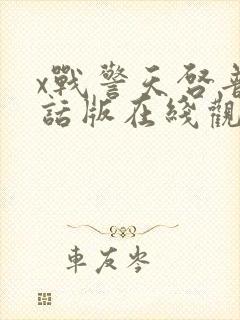 x戰警天啓普
話版在綫觀
車友岑